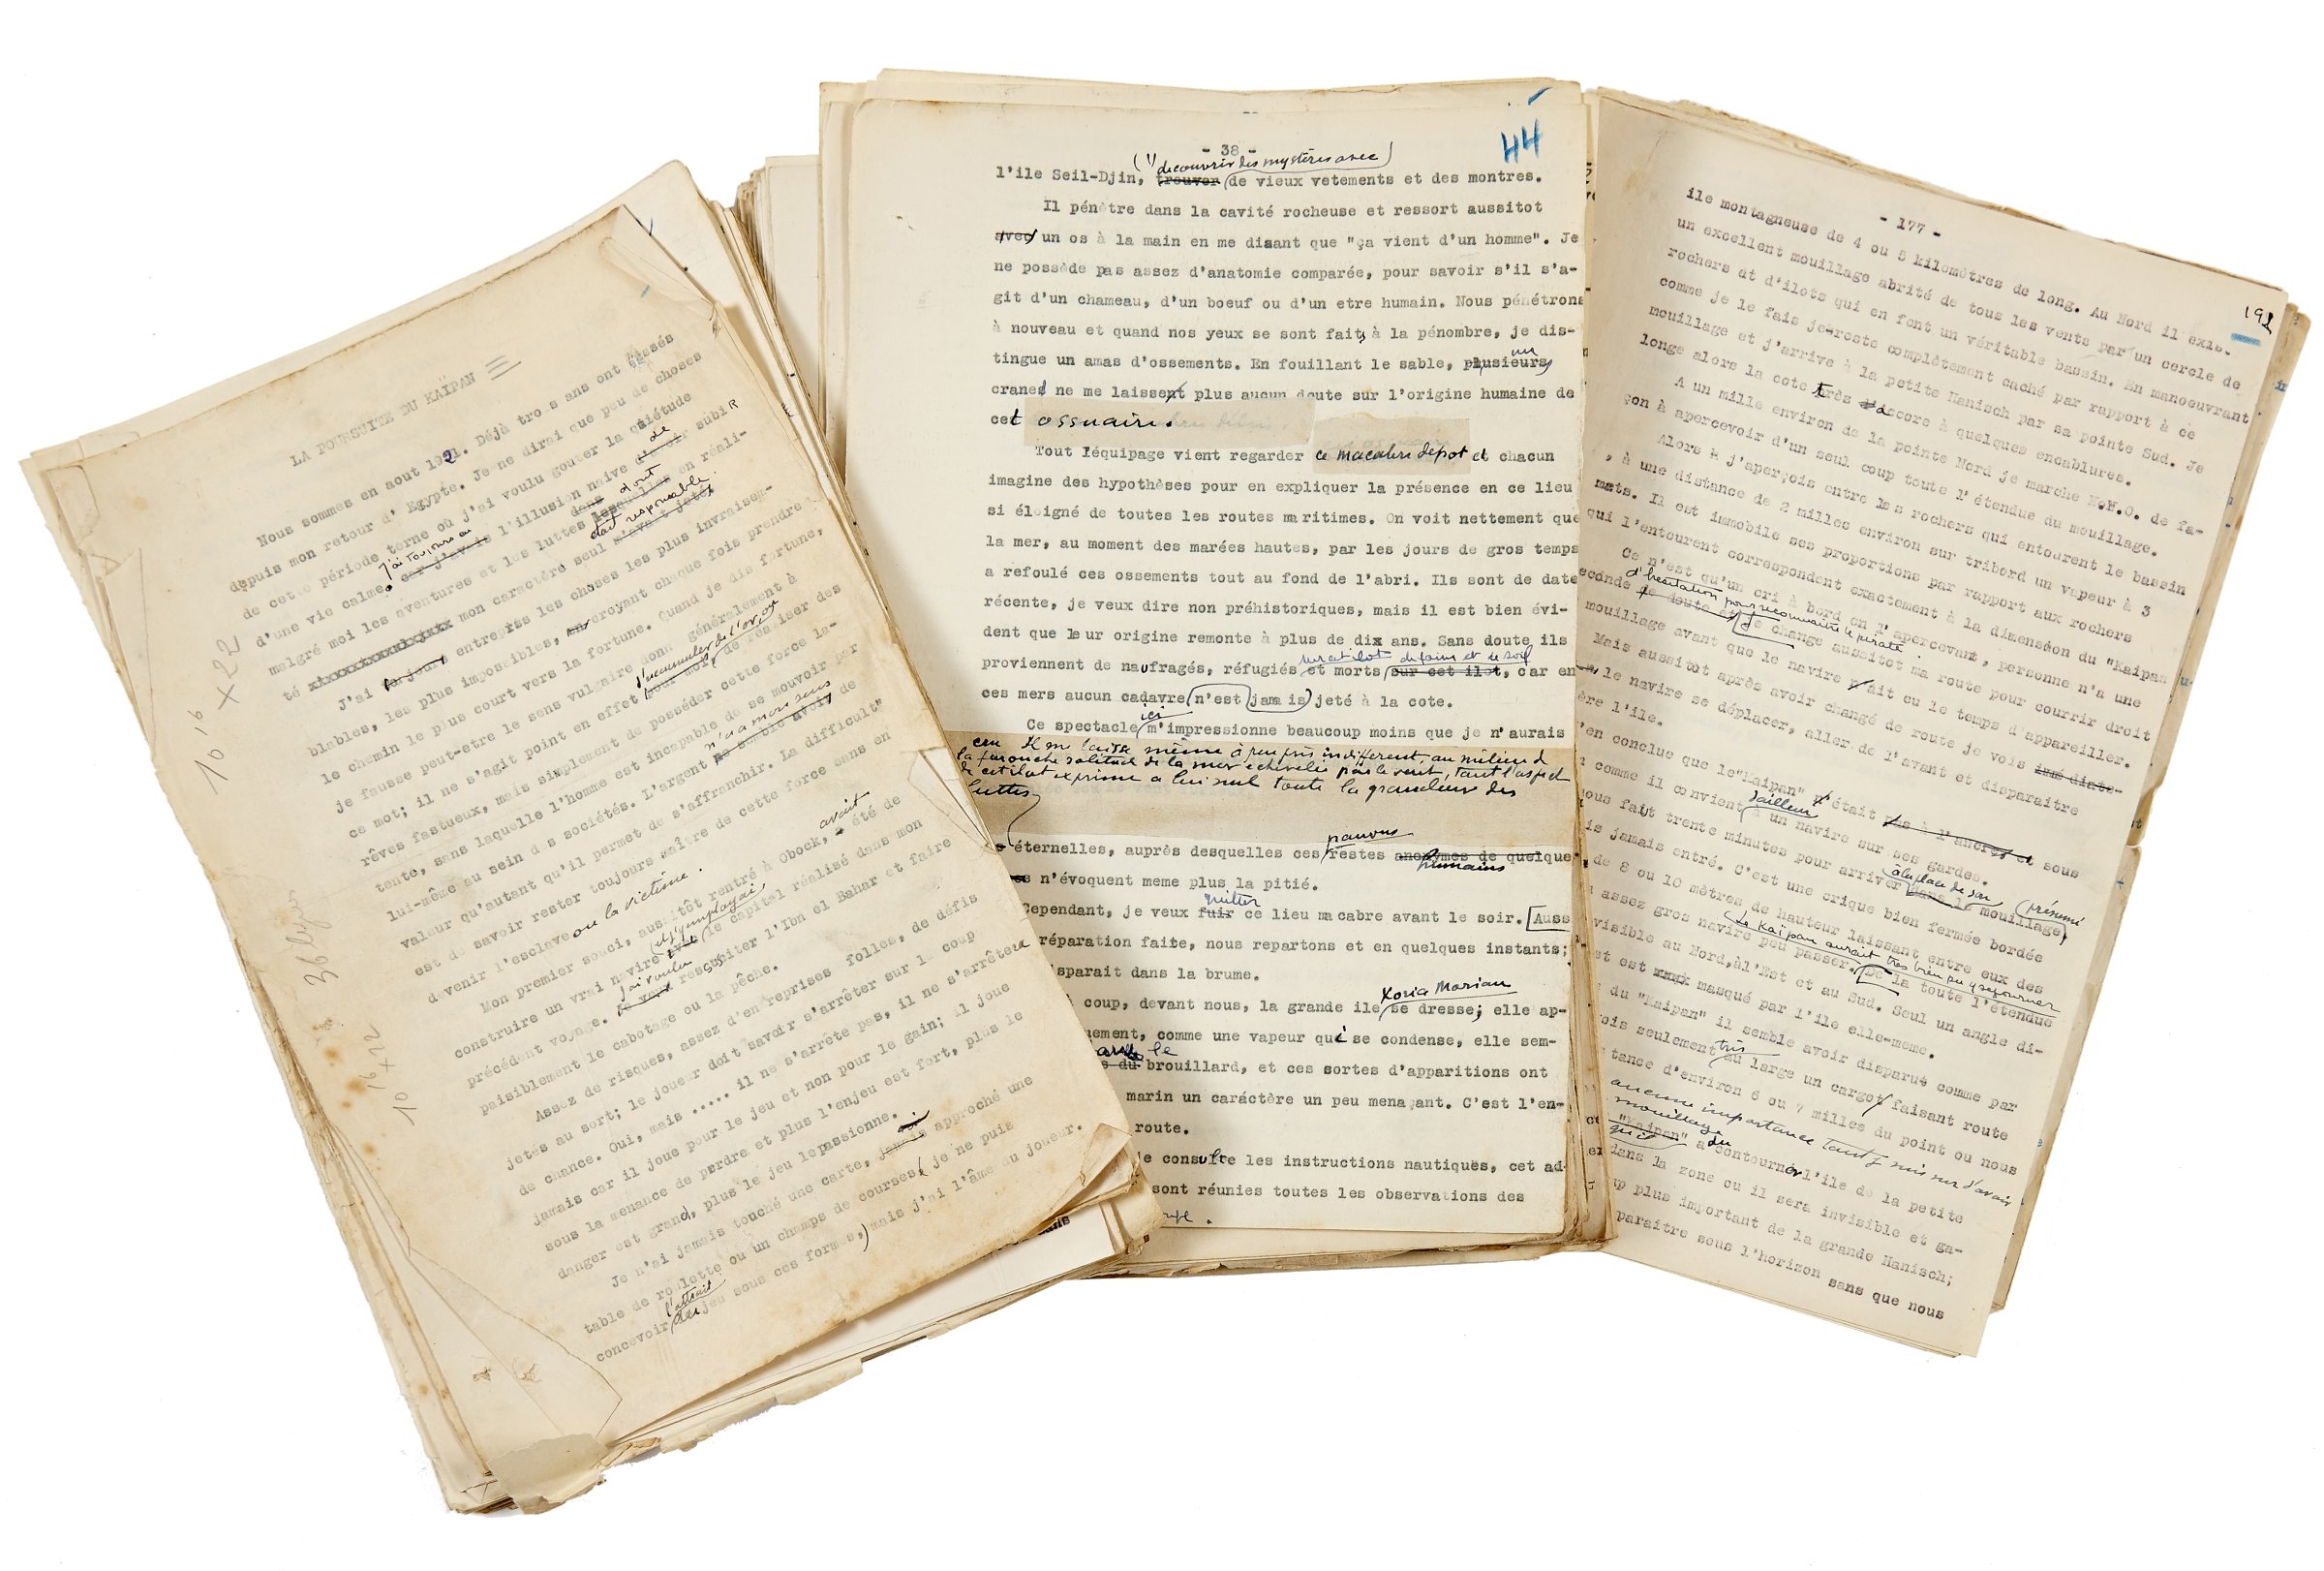 LA POURSUITE DU KAÏPAN
Nous sommes en aout 1921. Déjà tro s ans ont passés
depuis mon retour d' Egypte. Je ne dirai que peu de choses
de cette période terne où j'ai voulu gouter la quiétude
j'ai toujours eu de
d'une vie calme. car j'avais l'illusion naive d'avoir subiR
dans dont
malgré moi les aventures et les luttes lesquelles en réali-
était responsable
té mon caractère seul m'avait jeté.
J'ai toujours entrepris les choses les plus invraisem-
blables, les plus impossibles, en croyant chaque fois prendre
le chemin le plus court vers la fortune. Quand je dis fortune,
je fausse peut-etre le sens vulgaire donné généralement à
d'accumuler de l'or ou
ce mot; il ne s'agit point en effet pour moi, de réaliser des
rêves fastueux, mais simplement de posséder cette force la-
tente, sans laquelle l'homme est incapable de se mouvoir par
n'a à mon sens
lui-même au sein d s sociétés. L'argent me semble avoir de
valeur qu'autant qu'il permet de s'affranchir. La difficulté
est de savoir rester toujours maître de cette force sans en
devenir l'esclave ou la victime.
avait
Mon premier souci, aussitôt rentré à Obock, a été de
et j'y employai
construire un vrai navire avec le capital réalisé dans mon
j'ai voulu
précédent voyage. Je veux ressusciter l'Ibn el Bahar et faire
paisiblement le cabotage ou la pêche.
Assez de risques, assez d'entreprises folles, de défis
jetés au sort; le joueur doit savoir s'arrêter sur le coup
de chance. Oui, mais ..... il ne s'arrête pas, il ne s'arrêtera
jamais car il joue pour le jeu et non pour le gain; il joue
sous la menance de perdre et plus l'enjeu est fort, plus le
danger est grand, plus le jeu le passionne.
Je n'ai jamais touché une carte, jamais approché une
table de roulette ou un champs de courses, je ne puis
l'attrait
concevoir du jeu sous ces formes, mais j'ai l'âme du joueur.
10 16 x 22
36 lignes
10 16 x 22
44
- 38 -
(1) decouvrir des mystères avec
l'ile Seil-Djin, trouver de vieux vetements et des montres.
Il pénètre dans la cavité rocheuse et ressort aussitot
avec un os à la main en me disant que "ça vient d'un homme". Je
ne possède pas assez d'anatomie comparée, pour savoir s'il s'a-
git d'un chameau, d'un boeuf ou d'un etre humain. Nous pénétrons
à nouveau et quand nos yeux se sont faits à la pénombre, je dis-
un
tingue un amas d'ossements. En fouillant le sable, plusieurs
cranes ne me laissent plus aucun doute sur l'origine humaine de
cet ossuaire.
Tout l'équipage vient regarder ce macabre dépot et chacun
imagine des hypothèses pour en expliquer la présence en ce lieu
si éloigné de toutes les routes maritimes. On voit nettement que
la mer, au moment des marées hautes, par les jours de gros temps
a refoulé ces ossements tout au fond de l'abri. Ils sont de date
récente, je veux dire non préhistoriques, mais il est bien évi-
dent que leur origine remonte à plus de dix ans. Sans doute ils
sur cet ilot de faim et de soif
proviennent de naufragés, réfugiés et morts sur cet ilot, car en
ces mers aucun cadavre n'est jamais jeté à la cote.
ici
Ce spectacle m'impressionne beaucoup moins que je n'aurais
cru Il me laisse même à peu près indifférent, au milieu de
la farouche solitude de la mer échevelée par le vent, tant l'aspect
de cet ilot exprime à lui seul toute la grandeur des
luttes
pauvres
éternelles, auprès desquelles ces restes anonymes de quelque
humains
n'évoquent meme plus la pitié.
quitter
Cependant, je veux fuir ce lieu macabre avant le soir. Auss
réparation faite, nous repartons et en quelques instants;
isparait dans la brume.
Koria Morian
coup, devant nous, la grande ile se dresse; elle ap-
uement, comme une vapeur qui se condense, elle sem-
dans le
du brouillard, et ces sortes d'apparitions ont
marin un caractère un peu menaçant. C'est l'en-
route.
je consulte les instructions nautiques, cet ad-
sont réunies toutes les observations des
192
- 177 -
ile montagneuse de 4 ou 5 kilomètres de long. Au Nord il exis-
un excellent mouillage abrité de tous les vents par un cercle de
rochers et d'ilots qui en font un véritable bassin. En manoeuvrant
comme je le fais je reste complètement caché par rapport à ce
mouillage et j'arrive à la petite Hanisch par sa pointe Sud. Je
longe alors la cote très accore à quelques encablures.
A un mille environ de la pointe Nord je marche N.N.O. de fa-
çon à apercevoir d'un seul coup toute l'étendue du mouillage.
Alors j'aperçois entre les rochers qui entourent le bassin
, à une distance de 2 milles environ sur tribord un vapeur à 3
mats. Il est immobile ses proportions par rapport aux rochers
qui l'entourent correspondent exactement à la dimension du "Kaipan
Ce n'est qu'un cri à bord en l'apercevant, personne n'a une
d'hésitation pour reconnaitre le pirate.
econde de doute et je change aussitot ma route pour courrir droit
mouillage avant que le navire ait eu le temps d'appareiller.
Mais aussitot après avoir changé de route je vois immédiate-
le navire se déplacer, aller de l'avant et disparaitre
ère l'ile.
'en conclue que le "Kaipan" était pas à l'ancre et sous
d'ailleurs
comme il convient à un navire sur ses gardes.
à la place de son présumé
ous faut trente minutes pour arriver dans le mouillage
is jamais entré. C'est une crique bien fermée bordée
de 8 ou 10 mètres de hauteur laissant entre eux des
Le Kaïpan aurait très bien pu y séjourner
assez gros navire peu passer. De la toute l'étendue
visible au Nord, à l'Est et au Sud. Seul un angle di-
st est masqué par l'ile elle-meme.
du "Kaipan" il semble avoir disparut comme par
très
ois seulement au large un cargot faisant route
tance d'environ 6 ou 7 milles du point ou nous
aucune importance
mouillage
qu'il du
"Kaipan" a contourner l'ile de la petite
dans la zone ou il sera invisible et ga-
up plus important de la grande Hanisch;
paraitre sous l'horizon sans que nous